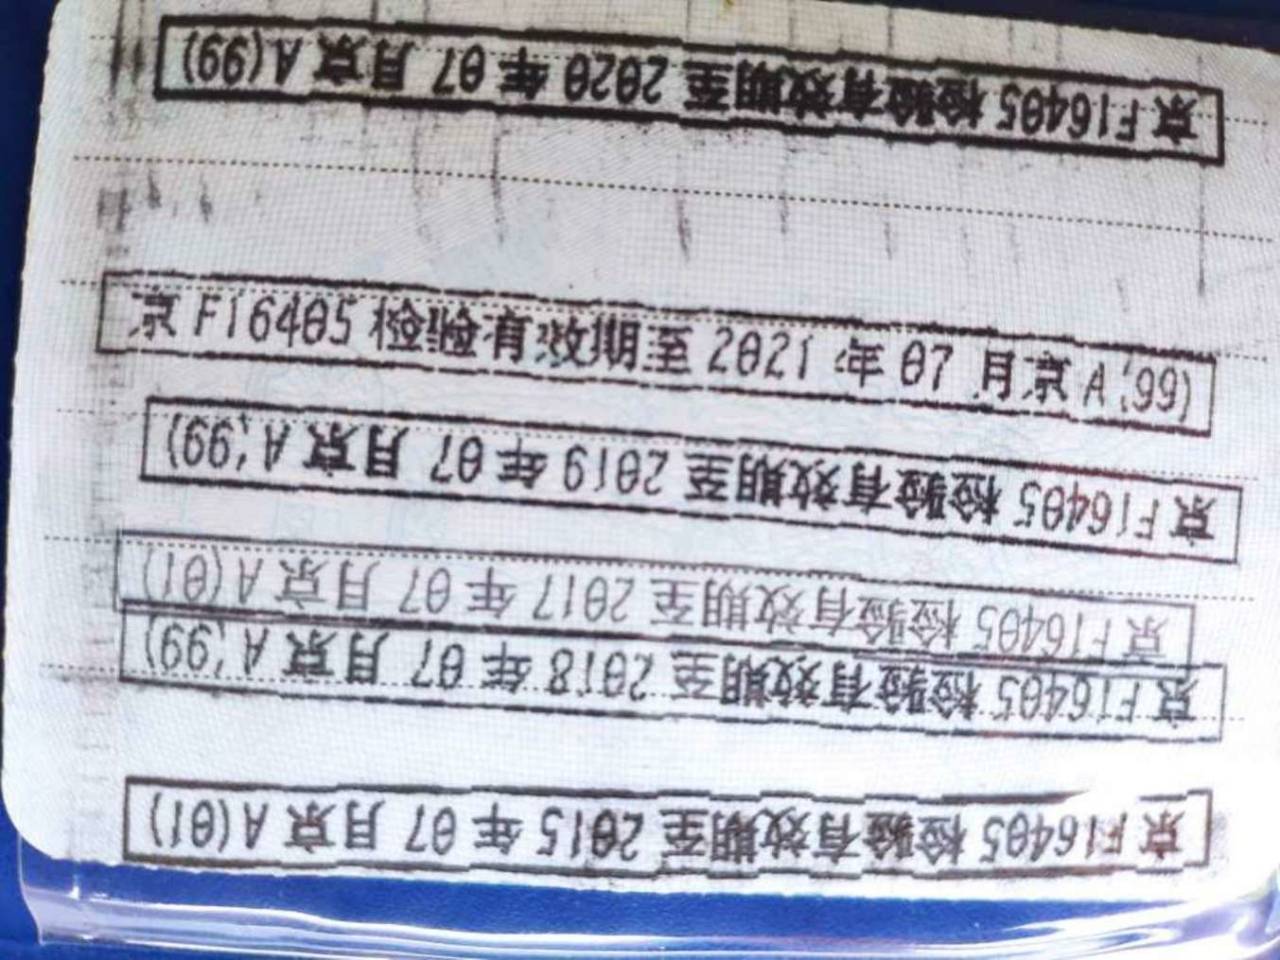 京 F16405 检验有效期至 2020 年 07 月京 A(99)
京 F16405 检验有效期至 2021 年 07 月京 A(99)
京 F16405 检验有效期至 2019 年 07 月京 A(99)
京 F16405 检验有效期至 2017 年 07 月京 A(01)
京 F16405 检验有效期至 2018 年 07 月京 A(99)
京 F16405 检验有效期至 2015 年 07 月京 A(01)